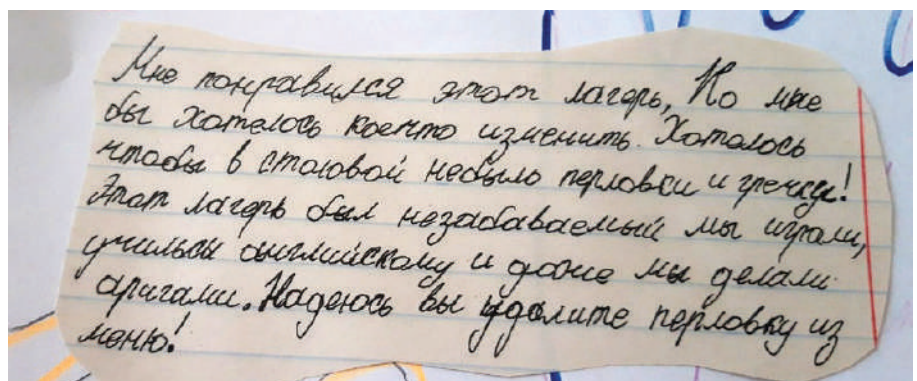 Мне понравился этот лагерь, Но мне
бы хотелось коечто изменить. Хотелось
чтобы в столовой небыло перловки и гречки!
Этот лагерь был незабаваемый мы играли,
учились английскому и даже мы делали
аригами. Надеюсь вы удалите перловку из
меню!